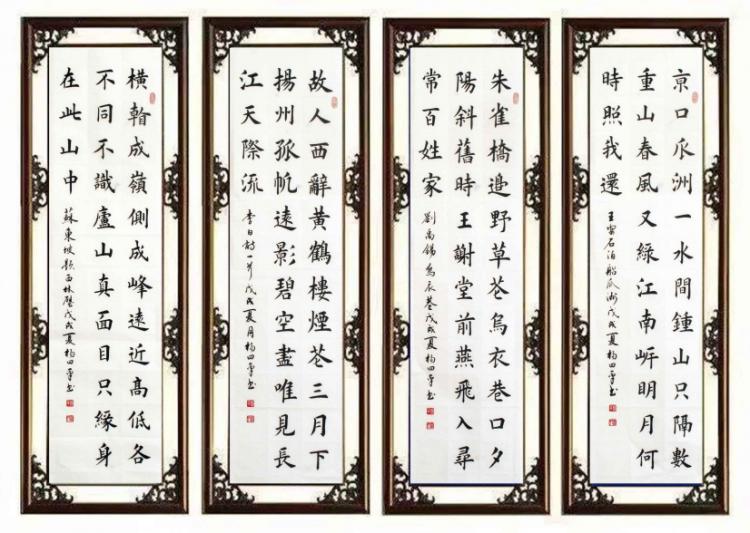 京口瓜洲一水間鍾山只隔數
重山春風又綠江南岸明月何
時照我還
王安石泊船瓜洲戊戌夏楊四書
朱雀橋邊野草花烏衣巷口夕
陽斜舊時王謝堂前燕飛入尋
常百姓家
劉禹錫烏衣巷戊戌夏楊四書
故人西辭黃鶴樓煙花三月下
揚州孤帆遠影碧空盡唯見長
江天際流
李白詩一首戊戌夏月楊四書
橫看成嶺側成峰遠近高低各
不同不識廬山真面目只緣身
在此山中
蘇東坡題西林壁戊戌夏楊四書